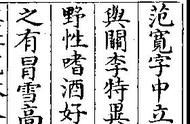 范寬字中立
與關李特異
野性嗜酒好
之有冒雪高